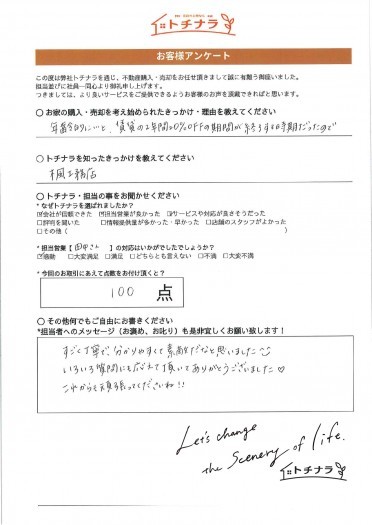 トチナラ
お客様アンケート
この度は弊社トチナラを通じ、不動産購入・売却をお任せ頂きまして誠に有難う御座いました。
担当並びに社員一同心より御礼申し上げます。
つきましては、より良いサービスをご提供できるようお客様のお声を頂戴できればと思います。
○ お家の購入・売却を考え始められたきっかけ・理由を教えてください
賃貸の2年間50%OFFの期間が終りする時期だったので
○ トチナラを知ったきっかけを教えてください
工務店
○ トチナラ・担当の事をお聞かせください
*なぜトチナラを選ばれましたか？
☑会社が信頼できた ☑担当営業が良かった ☑サービスや対応が良さそうだった
□評判を聞いた □情報提供量が多かった・早かった □店舗のスタッフがよかった
□その他（ ）
*担当営業【 田中さん 】の対応はいかがでしたでしょうか？
☑感動 □大変満足 □満足 □どちらとも言えない □不満 □大変不満
*今回のお取引にあえて点数をお付け頂くと？
100 点
○ その他何でもご自由にお書きください
*担当者へのメッセージ（お褒め、お叱り）も是非宜しくお願い致します！
すごく丁寧で、分かりやすくて素敵だなと思いました
いろいろ質問にも応えて頂いてありがとうございました♡
これからも頑張ってくださいね!!
Let's change
the Scenery of life.
トチナラ